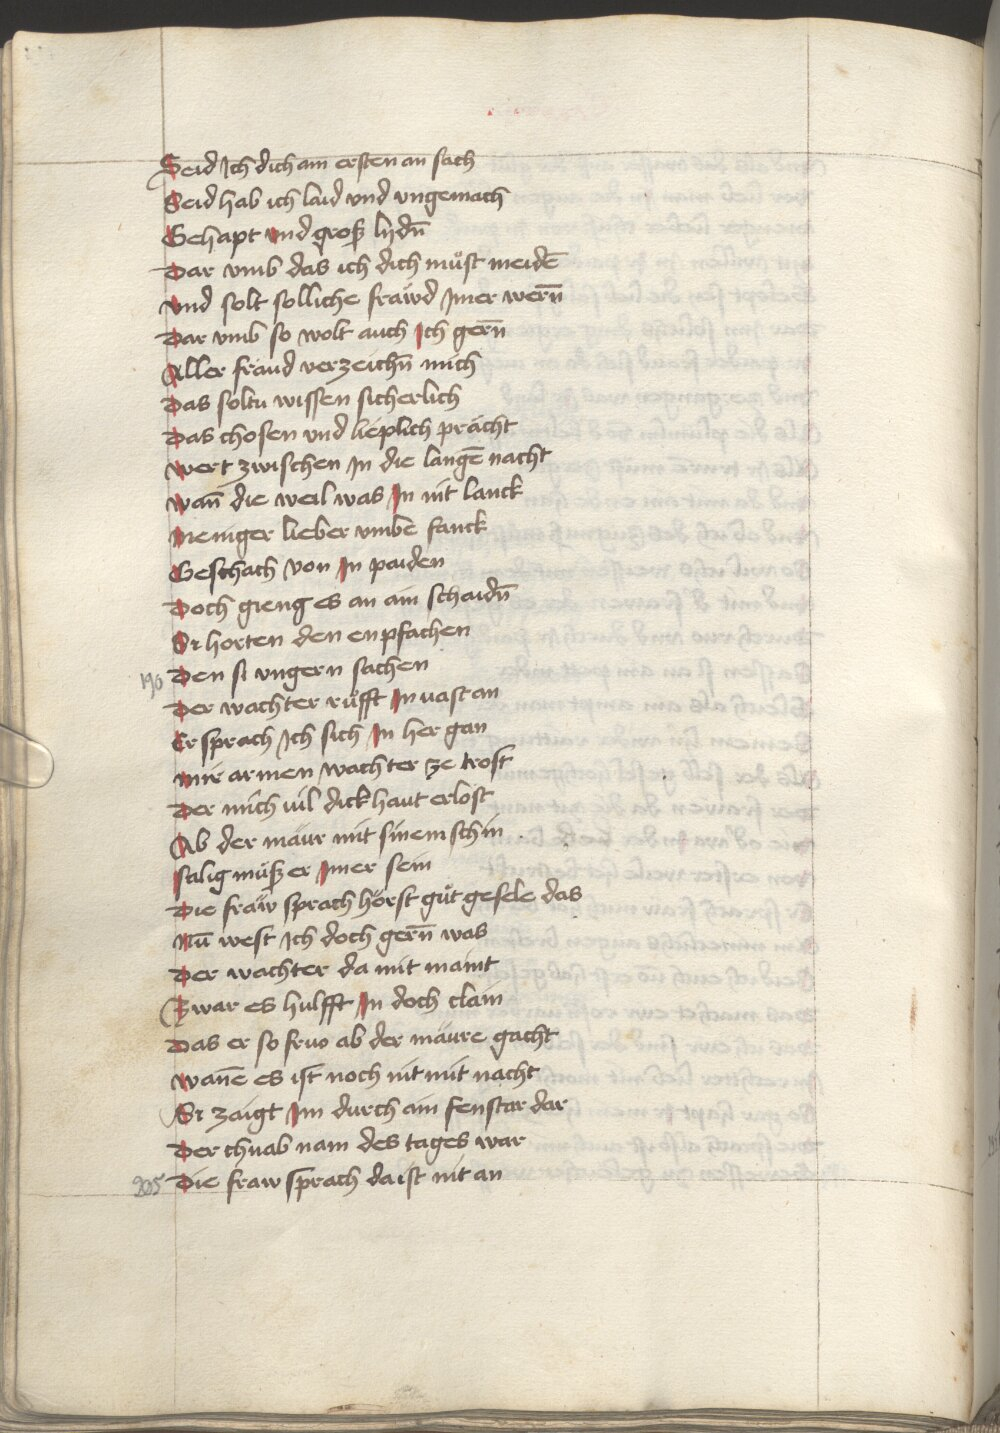 Seid Ich dich am ersten an sach
Seid hab ich laid vnd vngemach
Gehapt vnd groß lydn̄
Dar vmb das ich dich muͦst meidē
vnd solt solliche fraẅd Jmer wern̄
Dar vmb so wolt auch Ich gern̄
Aller fraͤud verzeichn̄ mich
Das soltu wissen sicherlich
Das chosen vnd lieplich praͤcht
wert zwischen In die langē nacht
wan̄ die weil was In nit lanck
meniger lieber vmbē fanck
Geschach von In paiden
Doch gieng es an ain schaidn̄
Si horten den enpfachen
190 Den si vngern sachen
Der wachter ruͦfft In vast an
Er sprach Ich sich In her gan
mir armen wachter ze trost
Der mich vil dick haut erlost
Ab der maur mit sinem schin
salig muͦß er Jmer sein
Die fraẅ sprach hoͤrst guͦt gesele das
Nū west Ich doch gern̄ was
Der wachter da mit maint
Zwar es hulfft In doch clain
Das er so fruo ab der maure gacht
wanē es ist noch nit mit nacht
Si zaigt Im durch ain fenstar dar
Der chnab nam des tages war
205 Die fraw sprach da ist nit an